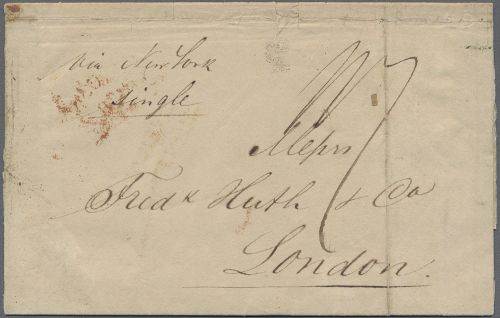 via New York
single
Messrs
Fredk Huth & Co
London.